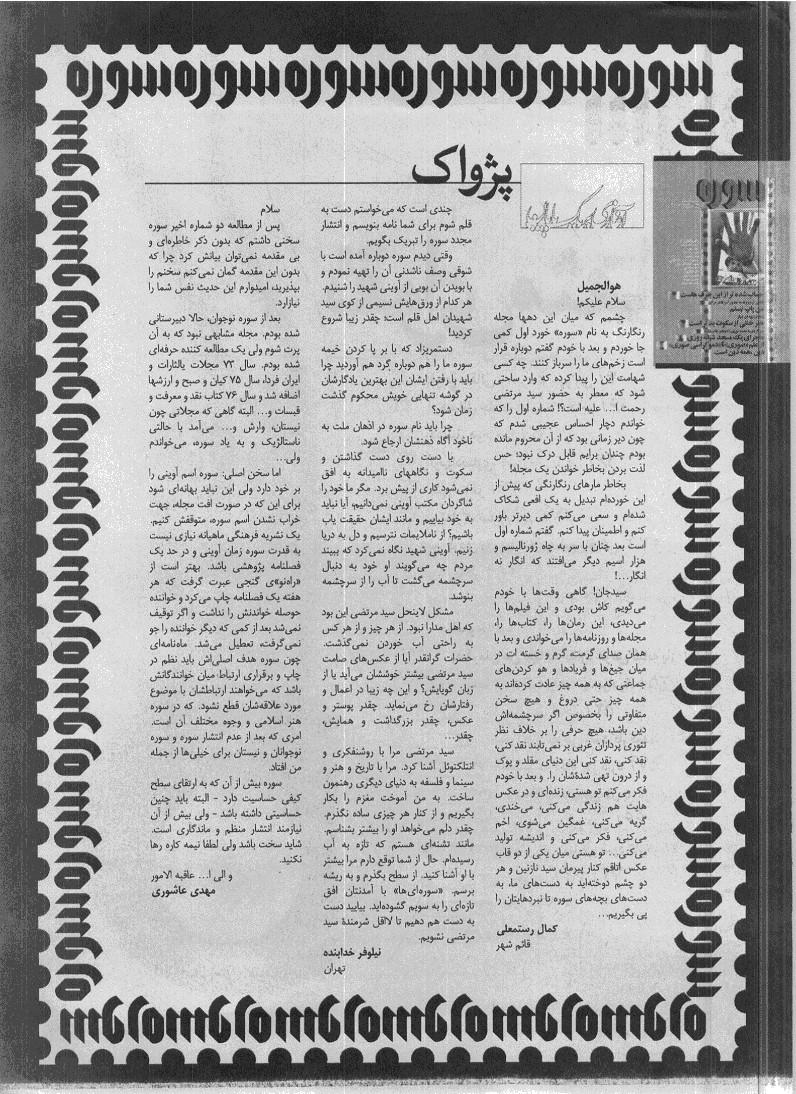 سوره سوره سوره سوره سوره سوره
پژواک
سوره
هوالجمیل
سلام علیکم!
چشمم که میان این دهها مجله
رنگارنگ به نام «سوره» خورد اول کمی
جا خوردم و بعد با خودم گفتم دوباره قرار
است زخم‌های ما را سرباز کنند. چه کسی
شهامت این را پیدا کرده که وارد ساحتی
شود که معطر به حضور سید مرتضی
رحمت ا... علیه است؟! شماره اول را که
خواندم دچار احساس عجیبی شدم که
چون دیر زمانی بود که از آن محروم مانده
بودم چندان برایم قابل درک نبود؛ حس
لذت بردن بخاطر خواندن یک مجله!
بخاطر مارهای رنگارنگی که پیش از
این خورده‌ام تبدیل به یک افعی شکاک
شده‌ام و سعی می‌کنم کمی دیرتر باور
کنم و اطمینان پیدا کنم. گفتم شماره اول
است بعد چنان با سر به چاه ژورنالیسم و
هزار اسیم دیگر می‌افتند که انگار نه
انگار...!
سیدجان! گاهی وقت‌ها با خودم
می‌گویم کاش بودی و این فیلم‌ها را
می‌دیدی، این رمان‌ها را، کتاب‌ها را،
مجله‌ها و روزنامه‌ها را می‌خواندی و بعد با
همان صدای گرمت، گرم و خسته ات در
میان جیغ‌ها و فریادها و هو کردن‌های
جماعتی که به همه چیز عادت کرده‌اند به
همه چیز حتی دروغ و هیچ سخن
متفاوتی را بخصوص اگر سرچشمه‌اش
دین باشد، هیچ حرفی را بر خلاف نظر
تئوری پردازان غربی بر نمی‌تابند نقد کنی،
نقد کنی، نقد کنی این دنیای مقلد و پوک
و از درون تهی شده‌شان را. و بعد با خودم
فکر می‌کنم تو هستی، زنده‌ای و در عکس
هایت هم زندگی می‌کنی، می‌خندی،
گریه می‌کنی، غمگین می‌شوی، اخم
می‌کنی، فکر می‌کنی و اندیشه تولید
می‌کنی... تو هستی میان یکی از دو قاب
عکس اتاقم کنار پیرمان سید نازنین و هر
دو چشم دوخته‌اید به دست‌های ما، به
دست‌های بچه‌های سوره تا نبردهایتان را
پی بگیریم...
کمال رستمعلی
قائم شهر
چندی است که می‌خواستم دست به
قلم شوم برای شما نامه بنویسم و انتشار
مجدد سوره را تبریک بگویم.
وقتی دیدم سوره دوباره آمده است با
شوقی وصف ناشدنی آن را تهیه نمودم و
با بوییدن آن بویی از آوینی شهید را شنیدم.
هر کدام از ورق‌هایش نسیمی از کوی سید
شهیدان اهل قلم است؛ چقدر زیبا شروع
کردید!
دستمریزاد که با بر پا کردن خیمه
سوره ما را هم دوباره گرد هم آوردید چرا
باید با رفتن ایشان این بهترین یادگارشان
در گوشه تنهایی خویش محکوم گذشت
زمان شود؟
چرا باید نام سوره در اذهان ملت به
ناخود آگاه ذهنشان ارجاع شود.
با دست روی دست گذاشتن و
سکوت و نگاههای ناامیدانه به افق
نمی‌شود کاری از پیش برد. مگر ما خود را
شاگردان مکتب آوینی نمی‌دانیم، آیا نباید
به خود بیاییم و مانند ایشان حقیقت یاب
باشیم؟ از ناملایمات نترسیم و دل به دریا
زنیم. آوینی شهید نگاه نمی‌کرد که ببیند
مردم چه می‌گویند او خود به دنبال
سرچشمه می‌گشت تا آب را از سرچشمه
بنوشد.
مشکل لاینحل سید مرتضی این بود
که اهل مدارا نبود. از هر چیز و از هر کس
به راحتی آب خوردن نمی‌گذشت.
حضرات گرانقدر آیا از عکس‌های صامت
سید مرتضی بیشتر خوششان می‌آید یا از
زبان گویایش؟ و این چه زیبا در اعمال و
رفتارشان رخ می‌نماید. چقدر پوستر و
عکس، چقدر بزرگداشت و همایش،
چقدر...
سید مرتضی مرا با روشنفکری و
انتلکتوئل آشنا کرد. مرا با تاریخ و هنر و
سینما و فلسفه به دنیای دیگری رهنمون
ساخت. به من آموخت مغزم را بکار
بگیریم و از کنار هر چیزی ساده نگذرم.
چقدر دلم می‌خواهد او را بیشتر بشناسم.
مانند تشنه‌ای هستم که تازه به آب
رسیده‌ام. حال از شما توقع دارم مرا بیشتر
با او آشنا کنید. از سطح بگذرم و به ریشه
برسم. «سوره‌ای‌ها» با آمدنتان افق
تازه‌ای را به سویم گشوده‌اید. بیایید دست
به دست هم دهیم تا لااقل شرمندهٔ سید
مرتضی نشویم.
نیلوفر خدابنده
تهران
سلام
پس از مطالعه دو شماره اخیر سوره
سخنی داشتم که بدون ذکر خاطره‌ای و
بی مقدمه نمی‌توان بیانش کرد چرا که
بدون این مقدمه گمان نمی‌کنم سخنم را
بپذیرید، امیدوارم این حدیث نفس شما را
نیازارد.
بعد از سوره نوجوان، حالا دبیرستانی
شده بودم. مجله مشابهی نبود که به آن
پرت شوم ولی یک مطالعه کننده حرفه‌ای
شده بودم. سال ۷۳ مجلات یالثارات و
ایران فردا، سال ۷۵ کیان و صبح و ارزشها
اضافه شد و سال ۷۶ کتاب نقد و معرفت و
قبسات و... البته گاهی که مجلاتی چون
نیستان، وارش و... می‌آمد با حالتی
ناستالژیک و به یاد سوره، می‌خواندم
ولی...
اما سخن اصلی: سوره اسم آوینی را
بر خود دارد ولی این نباید بهانه‌ای شود
برای این که در صورت افت مجله، جهت
خراب نشدن اسم سوره، متوقفش کنیم.
یک نشریه فرهنگی ماهیانه نیازی نیست
به قدرت سوره زمان آوینی و در حد یک
فصلنامه پژوهشی باشد. بهتر است از
«راه‌نو»ی گنجی عبرت گرفت که هر
هفته یک فصلنامه چاپ می‌کرد و خواننده
حوصله خواندنش را نداشت و اگر توقیف
نمی‌شد بعد از کمی که دیگر خواننده را جو
نمی‌گرفت، تعطیل می‌شد. ماه‌نامه‌ای
چون سوره هدف اصلی‌اش باید نظم در
چاپ و برقراری ارتباط میان خوانندگانش
باشد که می‌خواهند ارتباطشان با موضوع
مورد علاقه‌شان قطع نشود. که در سوره
هنر اسلامی و وجوه مختلف آن است.
امری که بعد از عدم انتشار سوره و سوره
نوجوانان و نیستان برای خیلی‌ها از جمله
من افتاد.
سوره بیش از آن که به ارتقای سطح
کیفی حساسیت دارد - البته باید چنین
حساسیتی داشته باشد - ولی بیش از آن
نیازمند انتشار منظم و ماندگاری است.
شاید سخت باشد ولی لطفا نیمه کاره رها
نکنید.
و الی ا... عاقبه الامور
مهدی عاشوری